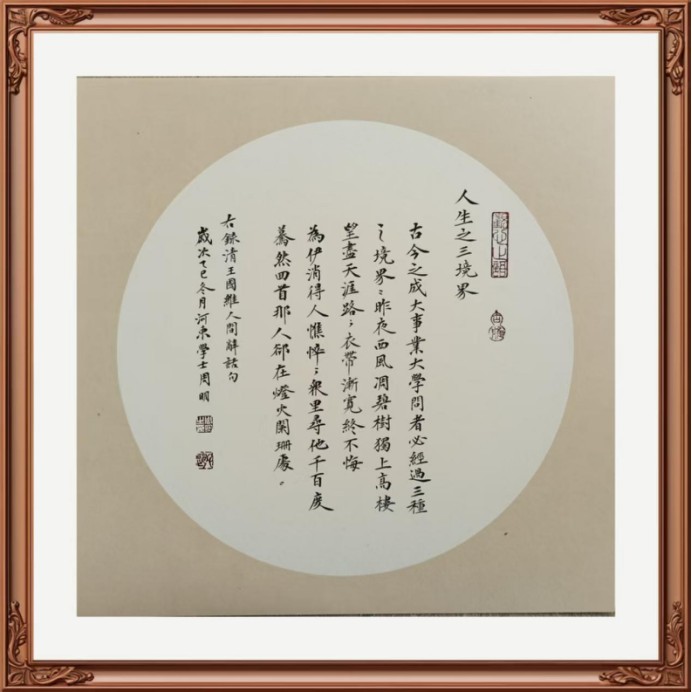 人生之三境界
古今之成大事業大學問者必經過三種
之境界：昨夜西風凋碧樹獨上高樓
望盡天涯路；衣帶漸寬終不悔
為伊消得人憔悴；衆里尋他千百度
驀然回首那人郤在燈火闌珊處。
右録清王國維人間辭話句
歲次乙巳冬月河東學士周明